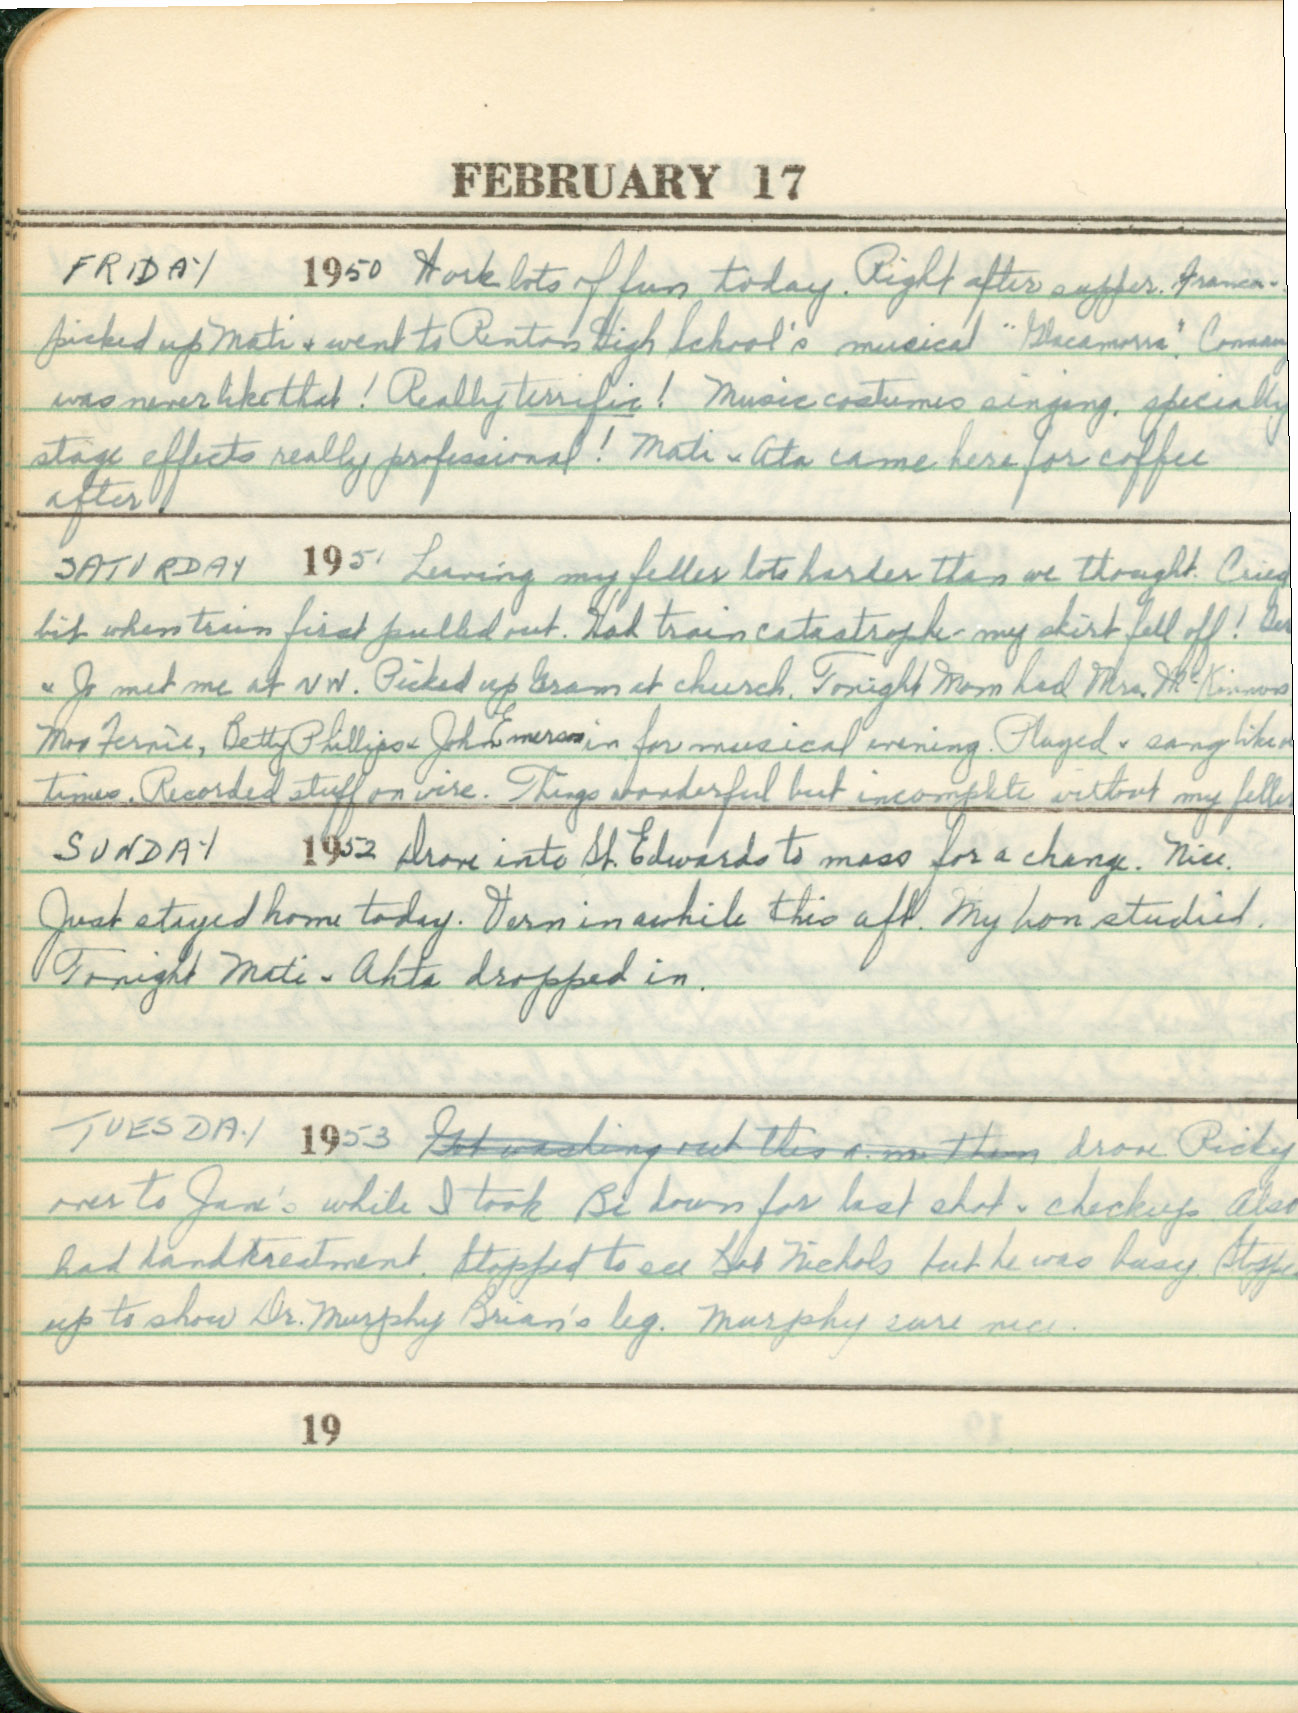 FEBRUARY 17
FRIDAY 1950 Work lots of fun today. Right after supper. Franca-
picked up Mati & went to Renton High School's musical "Glacamorra".
was never like that! Really terrific! Music costumes singing, specially
stage effects really professional! Mati & Ata came here for coffee
after.
SATURDAY 1951 Leaving my feller lots harder than we thought. Cried
bit when train first pulled out. Had train catastrophe - my skirt fell off!
& Jo met me at VW. Picked up Gram at church. Tonight Mom had Mrs. McKinnons
Moo Fernie, Betty Phillips & John Emerson in for musical evening. Played & sang like
times. Recorded stuff on wire. Things wonderful but incomplete without my feller
SUNDAY 1952 Drove into St. Edwards to mass for a change. Nice.
Just stayed home today. Vern in awhile this aft. My hon studied.
Tonight Mati & Ahta dropped in.
TUESDAY 1953 Got washing out this a.m. then drove Ricky
over to Jane's while I took Bri down for last shot & checkup. Also
had hand treatment. Stopped to see Bob Nichols but he was busy. Stopped
up to show Dr. Murphy Brian's leg. Murphy sure nice.
19